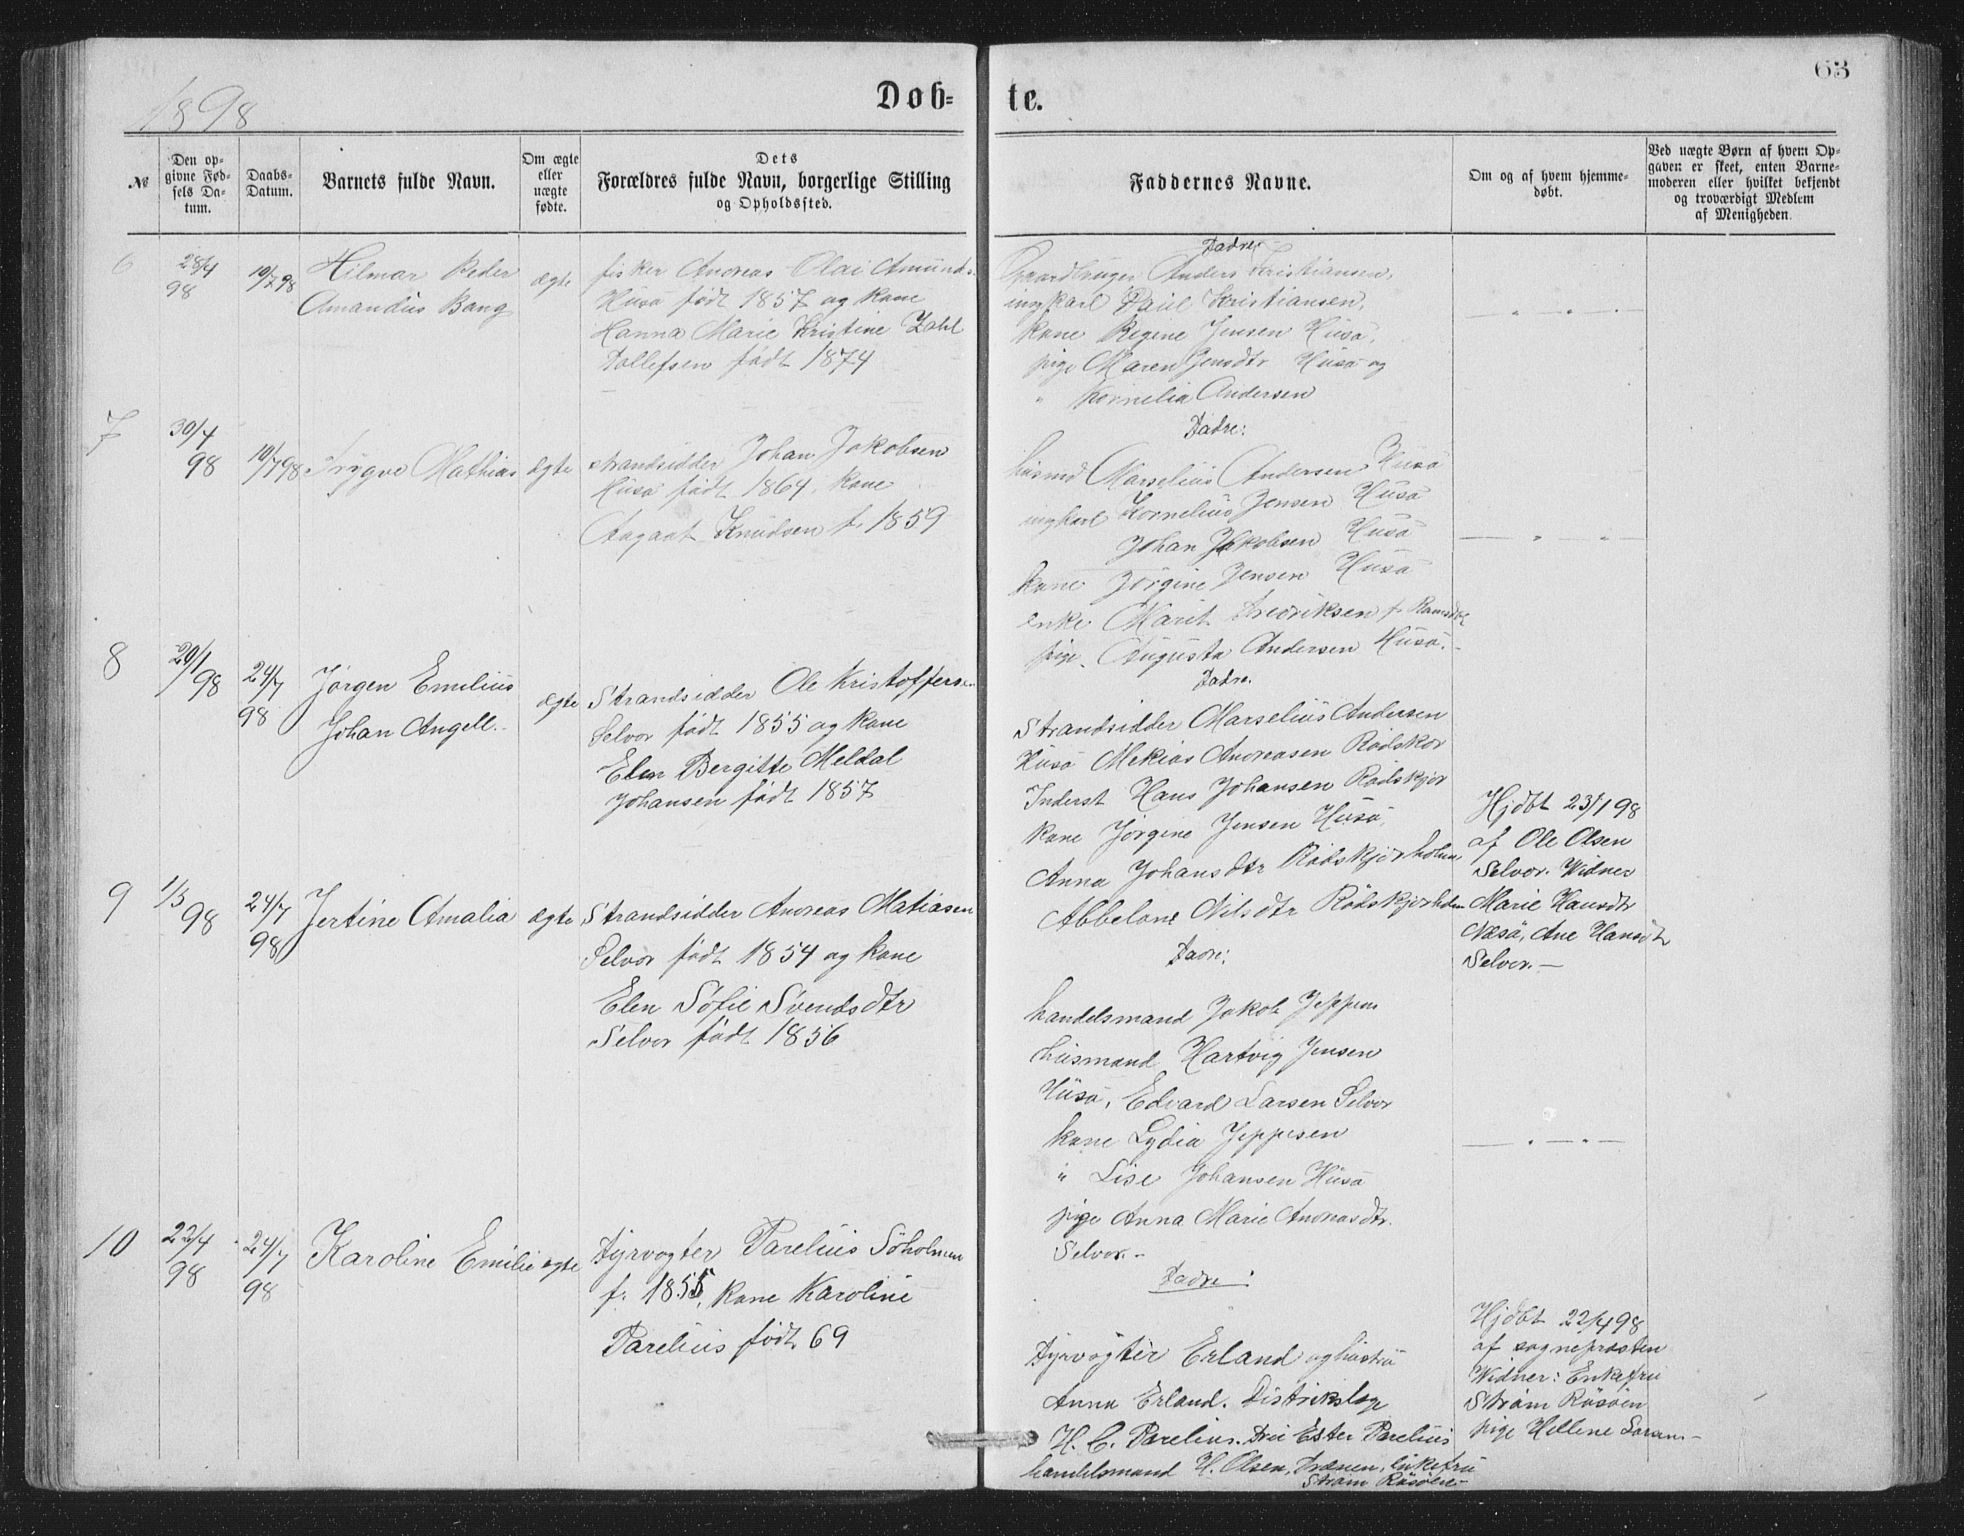 1898
Døb=
te.
63
№
Den op=
givne Fød=
sels Da=
tum.
Daabs=
Datum.
Barnets fulde Navn.
Om ægte
eller
uægte
fødte.
Dets
Forældres fulde Navn, borgerlige Stilling
og Opholdssted.
Faddernes Navne.
Om og af hvem hjemme=
døbt.
Ved uægte Børn af hvem Op=
gaven er skeet, enten Barne=
moderen eller hvilket bekjendt
og troværdigt Medlem
af Menigheden.
6
28/4
98
10/7 98
Hilmar Peder
Amandus Bang
ægte
fisker Andreas Olai Amunds.
Husø født 1857 og kone
Hanna Marie Kristine Zahl
Tollefsen født 1874
Fadre
Gaardbruger Anders Kristiansen,
ungkarl Paul Kristiansen,
kone Regine Jensen Husø,
pige Maren Jensdtr Husø og
" Kornelia Andersen
7
30/4
98
10/7 98
Trygve Mathias
ægte
strandsidder Johan Jakobsen
Husø født 1864, kone
Aagaat Knudsen f. 1859
Fadre:
husmd Marselius Andersen Husø
ungkarl Kornelius Jensen Husø
Johan Jakobsen Husø
kone Jørgine Jensen Husø
enke Marit Fredriksen f.
pige Augusta Andersen Husø.
8
20/1
98
24/7
98
Jørgen Emilius
Johan Angell.
ægte
Strandsidder Ole Kristoffersen
Selvor født 1855 og kone
Elen Bergitte Meldal
Johansen født 1857
Fadre.
Strandsidder Marselius Andersen
Husø Mekias Andreasen Rødskor
Inderst Hans Johansen Rødskjør
kone Jørgine Jensen Husø,
Anna Johansdtr Rødskjørholm
Abbelone Nilsdtr Rødskjørholm
Hjdbt 23/1 98
af Ole Olsen
Selvor. Widner
Marie Hansdtr
Næsø, Ane Hansdtr
Selvor. —
9
1/5
98
24/7
98
Jertine Amalia
ægte
Strandsidder Andreas Matiasen
Selvor født 1854 og kone
Elen Sofie Svendsdtr
Selvor født 1856
Fadre:
handelsmand Jakob Jeppesen
husmand Hartvig Jensen
Husø, Edvard Larsen Selvor
kone Lydia Jeppesen
" Lise Johansen Husø
pige Anna Marie Andreasdtr.
Selvor. -
10
22/4
98
24/7
98
Karoline Emilie
ægte
Fyrvogter Parelius Søholmen
f. 1855, kone Karoline
Parelius født 69
Fadre:
Fyrvogter Erland og hustru
Anna Erland. Distrikslæge
H. C. Parelius. Fru Ester Parelius
handelsmand H. Olsen, Trænen, enkefru
Strøm Røsøen
Hjdbt 22/4 98
af sogneprosten
Widner: Enkefru
Strøm Røsøen
pige Hellene Larsen -